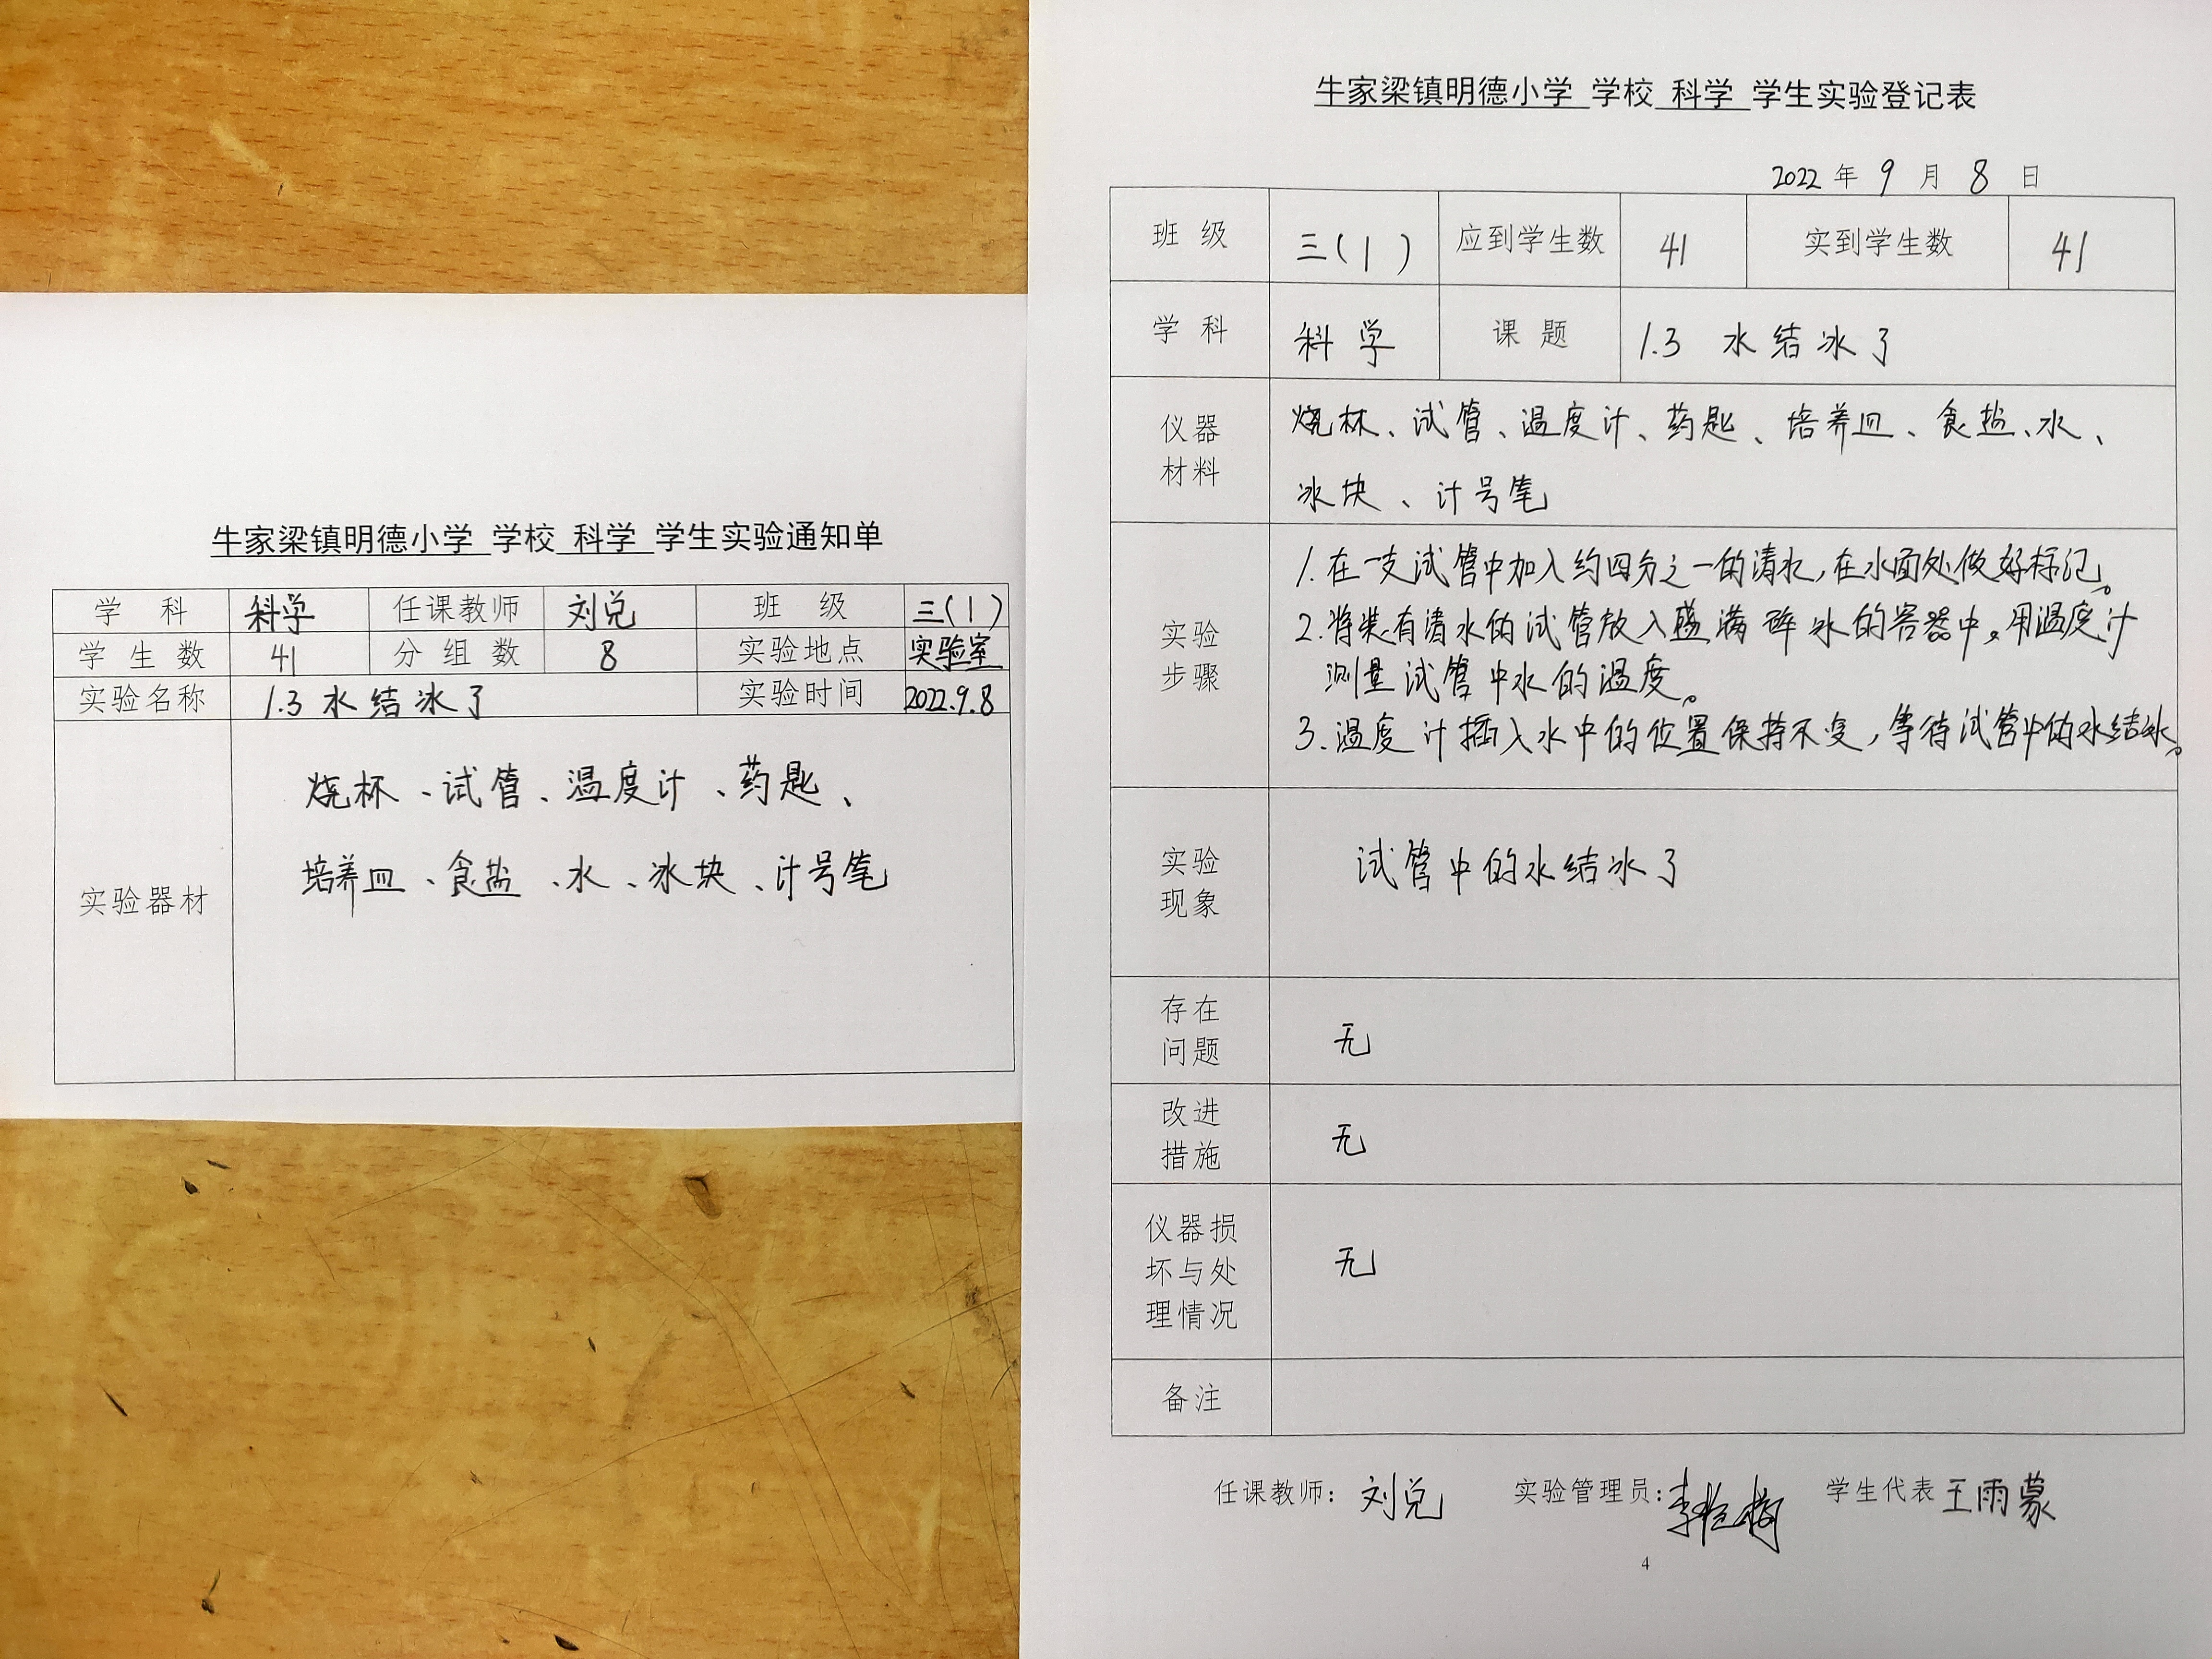 牛家梁镇明德小学 学校 科学 学生实验通知单
学 科 科学 任课教师 刘兑 班 级 三(1)
学 生 数 41 分 组 数 8 实验地点 实验室
实验名称 1.3 水结冰了 实验时间 2022.9.8
实验器材
烧杯、试管、温度计、药匙、
培养皿、食盐、水、冰块、计号笔
牛家梁镇明德小学 学校 科学 学生实验登记表
2022 年 9 月 8 日
班 级 三(1) 应到学生数 41 实到学生数 41
学 科 科学 课 题 1.3 水结冰了
仪器
材料
烧杯、试管、温度计、药匙、培养皿、食盐、水、
冰块、计号笔
实验
步骤
1.在一支试管中加入约四分之一的清水,在水面处做好标记。
2.将装有清水的试管放入盛满碎冰的容器中。用温度计
测量试管中水的温度。
3.温度计插入水中的位置保持不变,等待试管中的水结冰。
实验
现象
试管中的水结冰了
存在
问题
无
改进
措施
无
仪器损
坏与处
理情况
无
备注
任课教师: 刘兑 实验管理员: 学生代表 王雨蒙
4